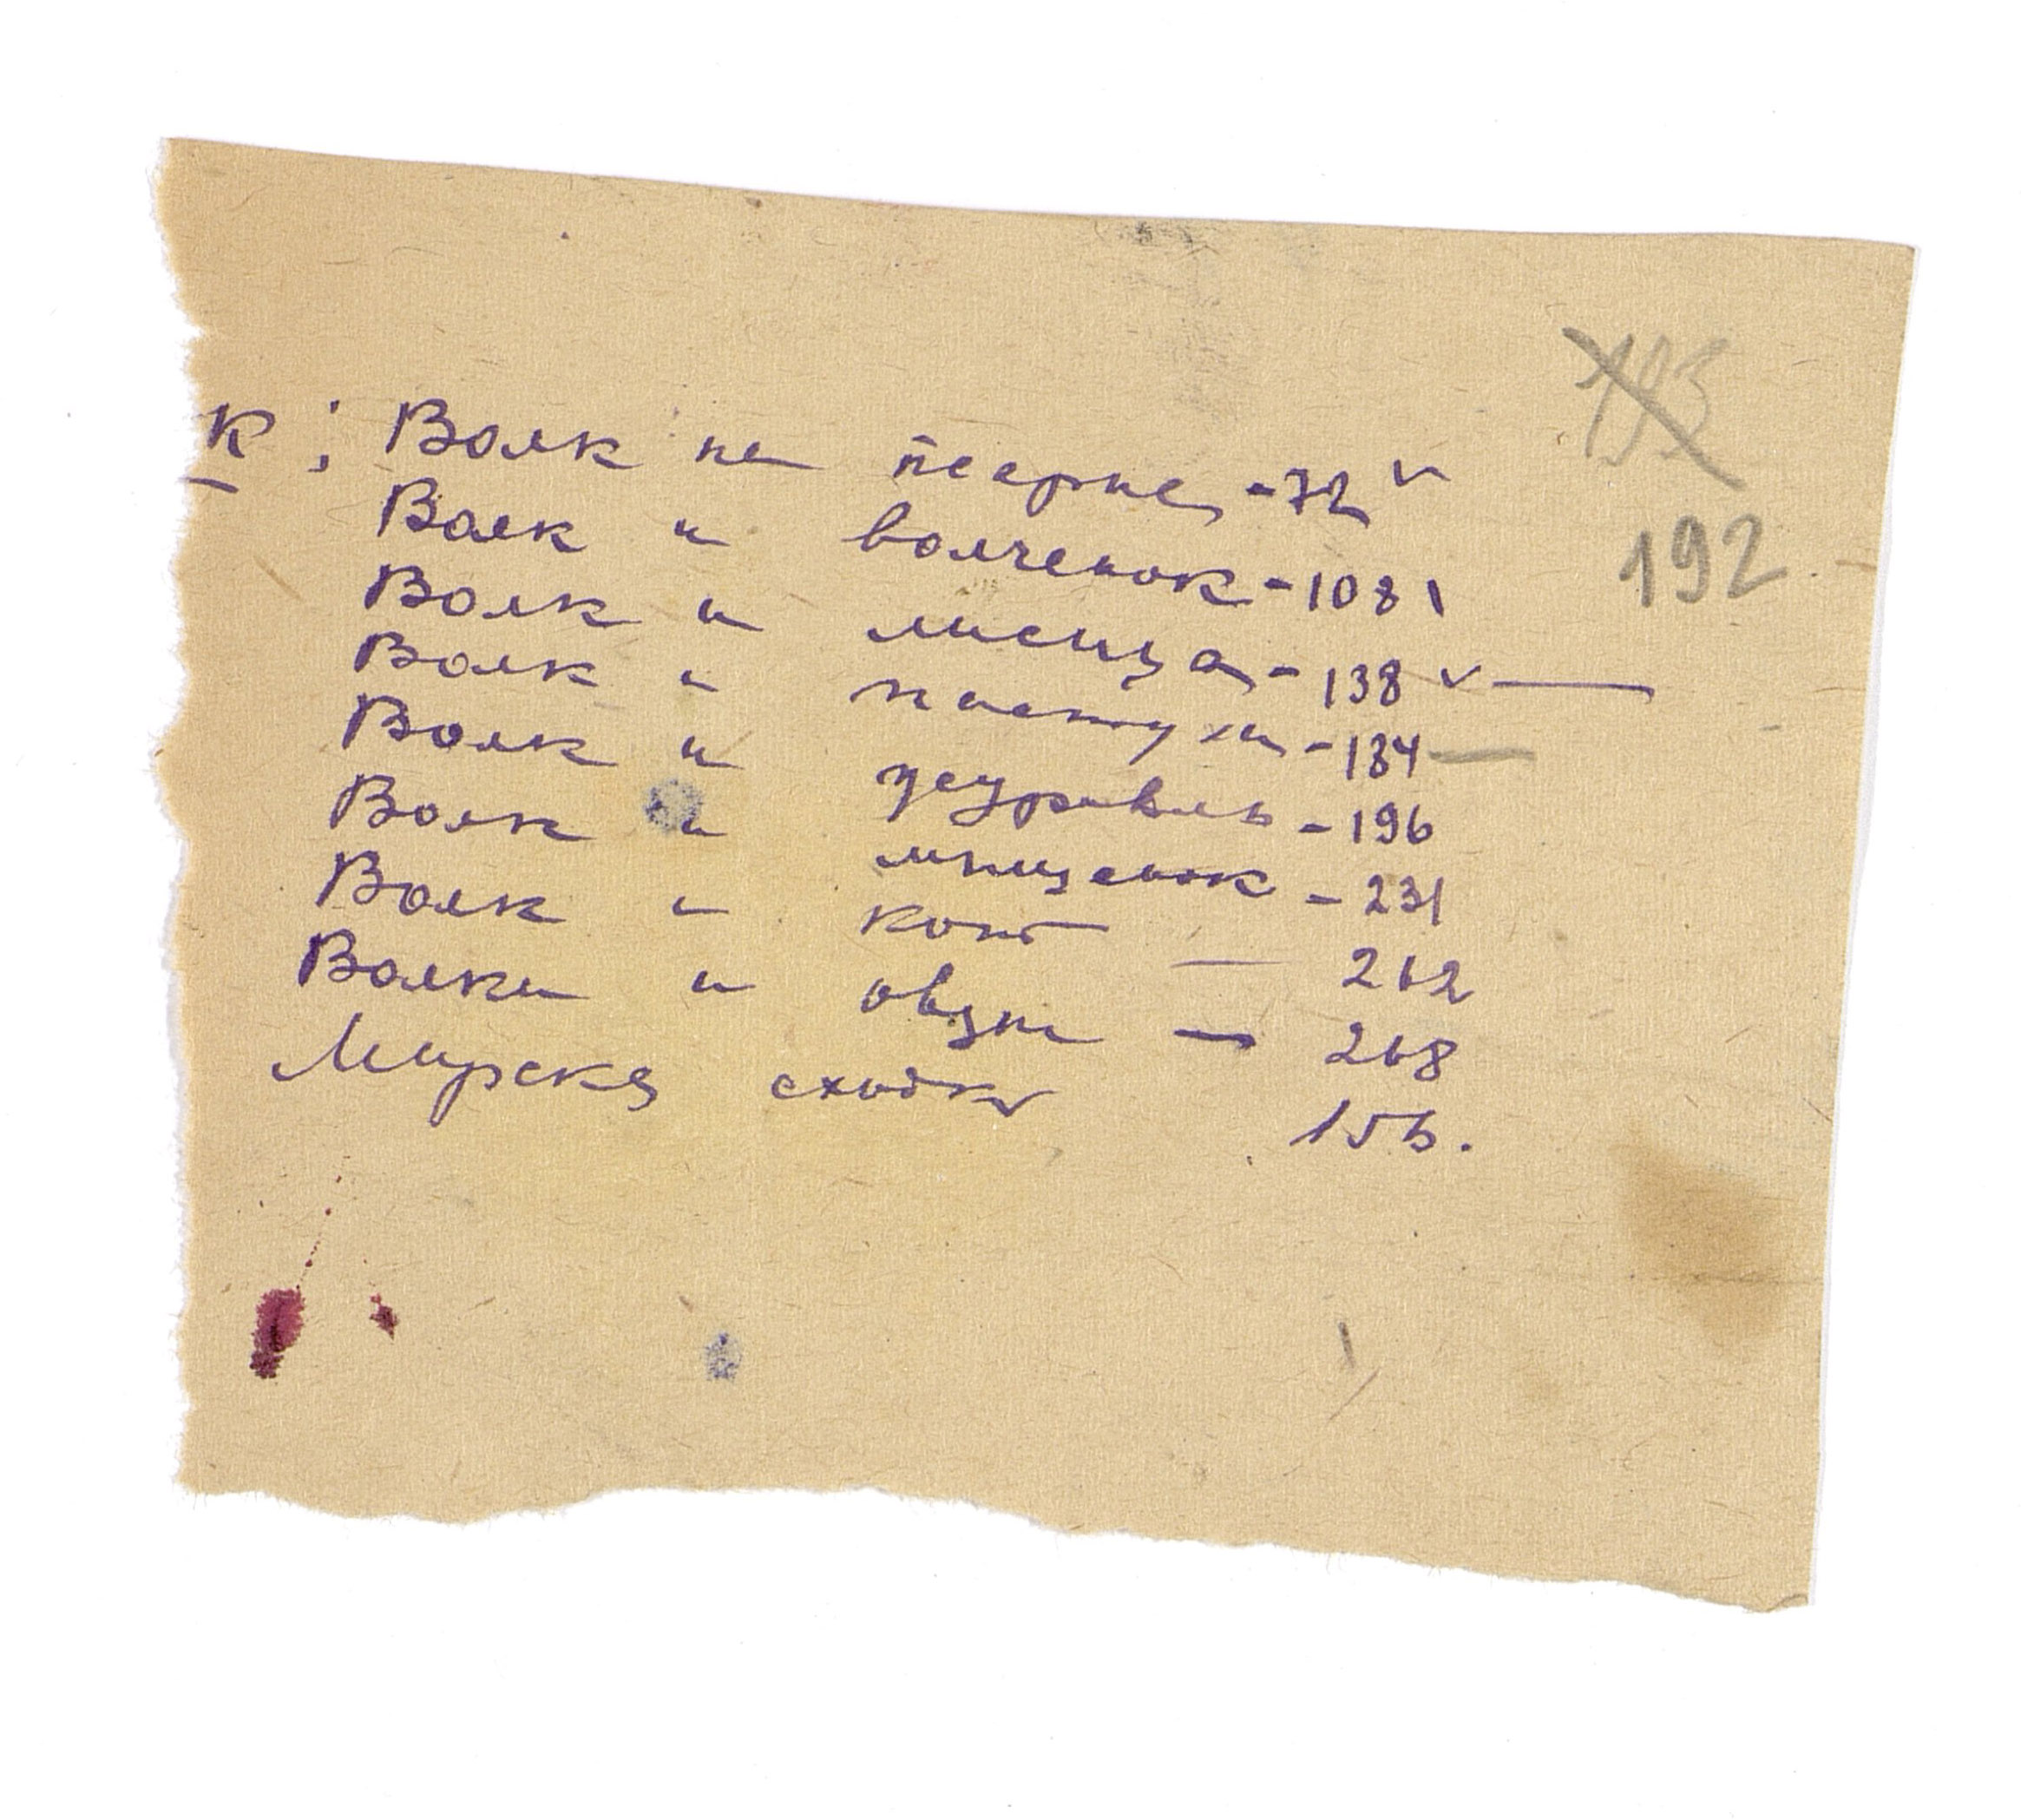 193
192
К; Волк на псарне - 72 v
Волк и волченок - 108 \
Волк и лисица - 138 v —
Волк и пастухи - 184 —
Волк и журавль - 196
Волк и мышенок - 231
Волк и кот — 262
Волки и овцы — 268
Мирска сходка 156.